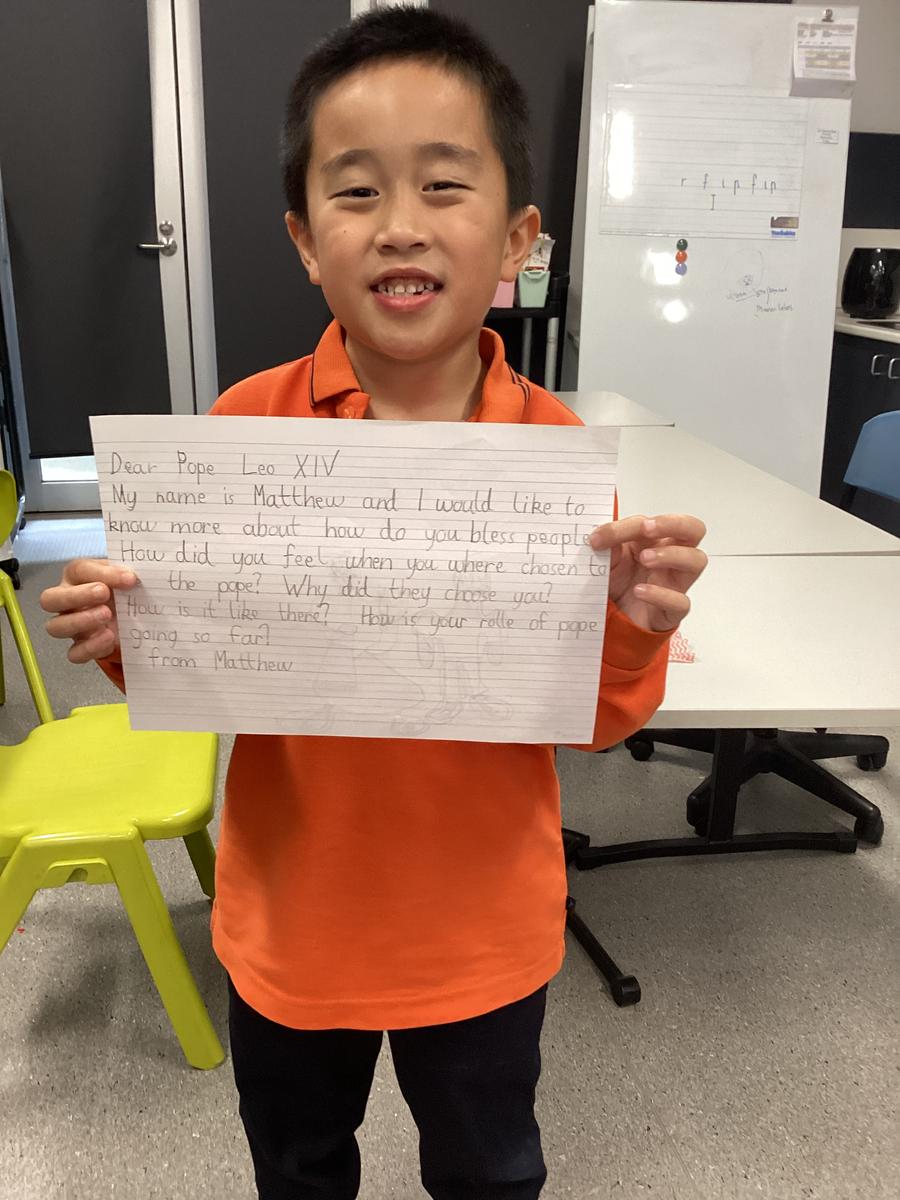 Dear Pope Leo XIV
My name is Matthew and I would like to
know more about how do you bless people?
How did you feel when you where chosen to
the pope? Why did they choose you?
How is it like there? How is your rolle of pope
going so far?
from Matthew
r f i n f i n
I